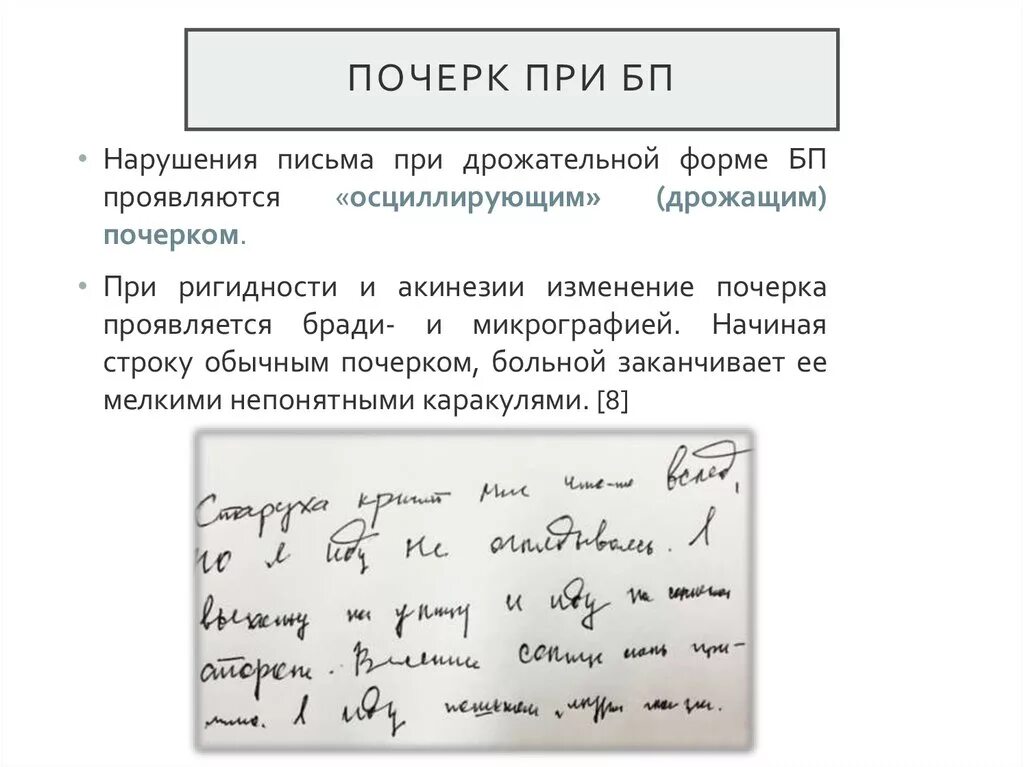 ПОЧЕРК ПРИ БП
• Нарушения письма при дрожательной форме БП
проявляются «осциллирующим» (дрожащим)
почерком.
• При ригидности и акинезии изменение почерка
проявляется бради- и микрографией. Начиная
строку обычным почерком, больной заканчивает ее
мелкими непонятными каракулями. [8]
Старуха кричит мне что-то вслед,
но я иду не оглядываясь. Я
выхожу на улицу и иду по солнечной
стороне. Весеннее солнце
Я иду пешком,